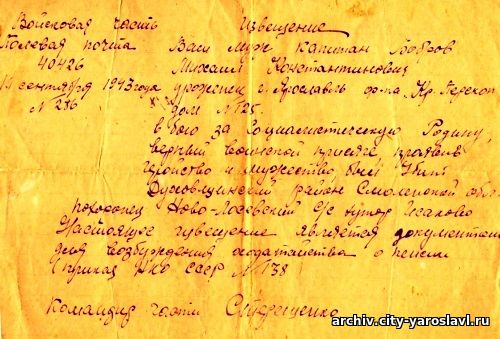 Войсковая часть Извещение
Полевая почта Ваш муж капитан Бобров
40426 Михаил Константинович
11 сентября 1943 года уроженец г. Ярославль ф-ка Кр. Перекоп
№ 216 дом № 125
в бою за Социалистическую Родину,
верный воинской присяге, проявив
геройство и мужество, был убит
Духовщинский район Смоленской обл.
похоронен Ново-Лосевский С/с хутор Исаково
Настоящее извещение является документом
для возбуждения ходатайства о пенсии
Приказ НКО СССР № 138
Командир части
archiv.city-yaroslavl.ru